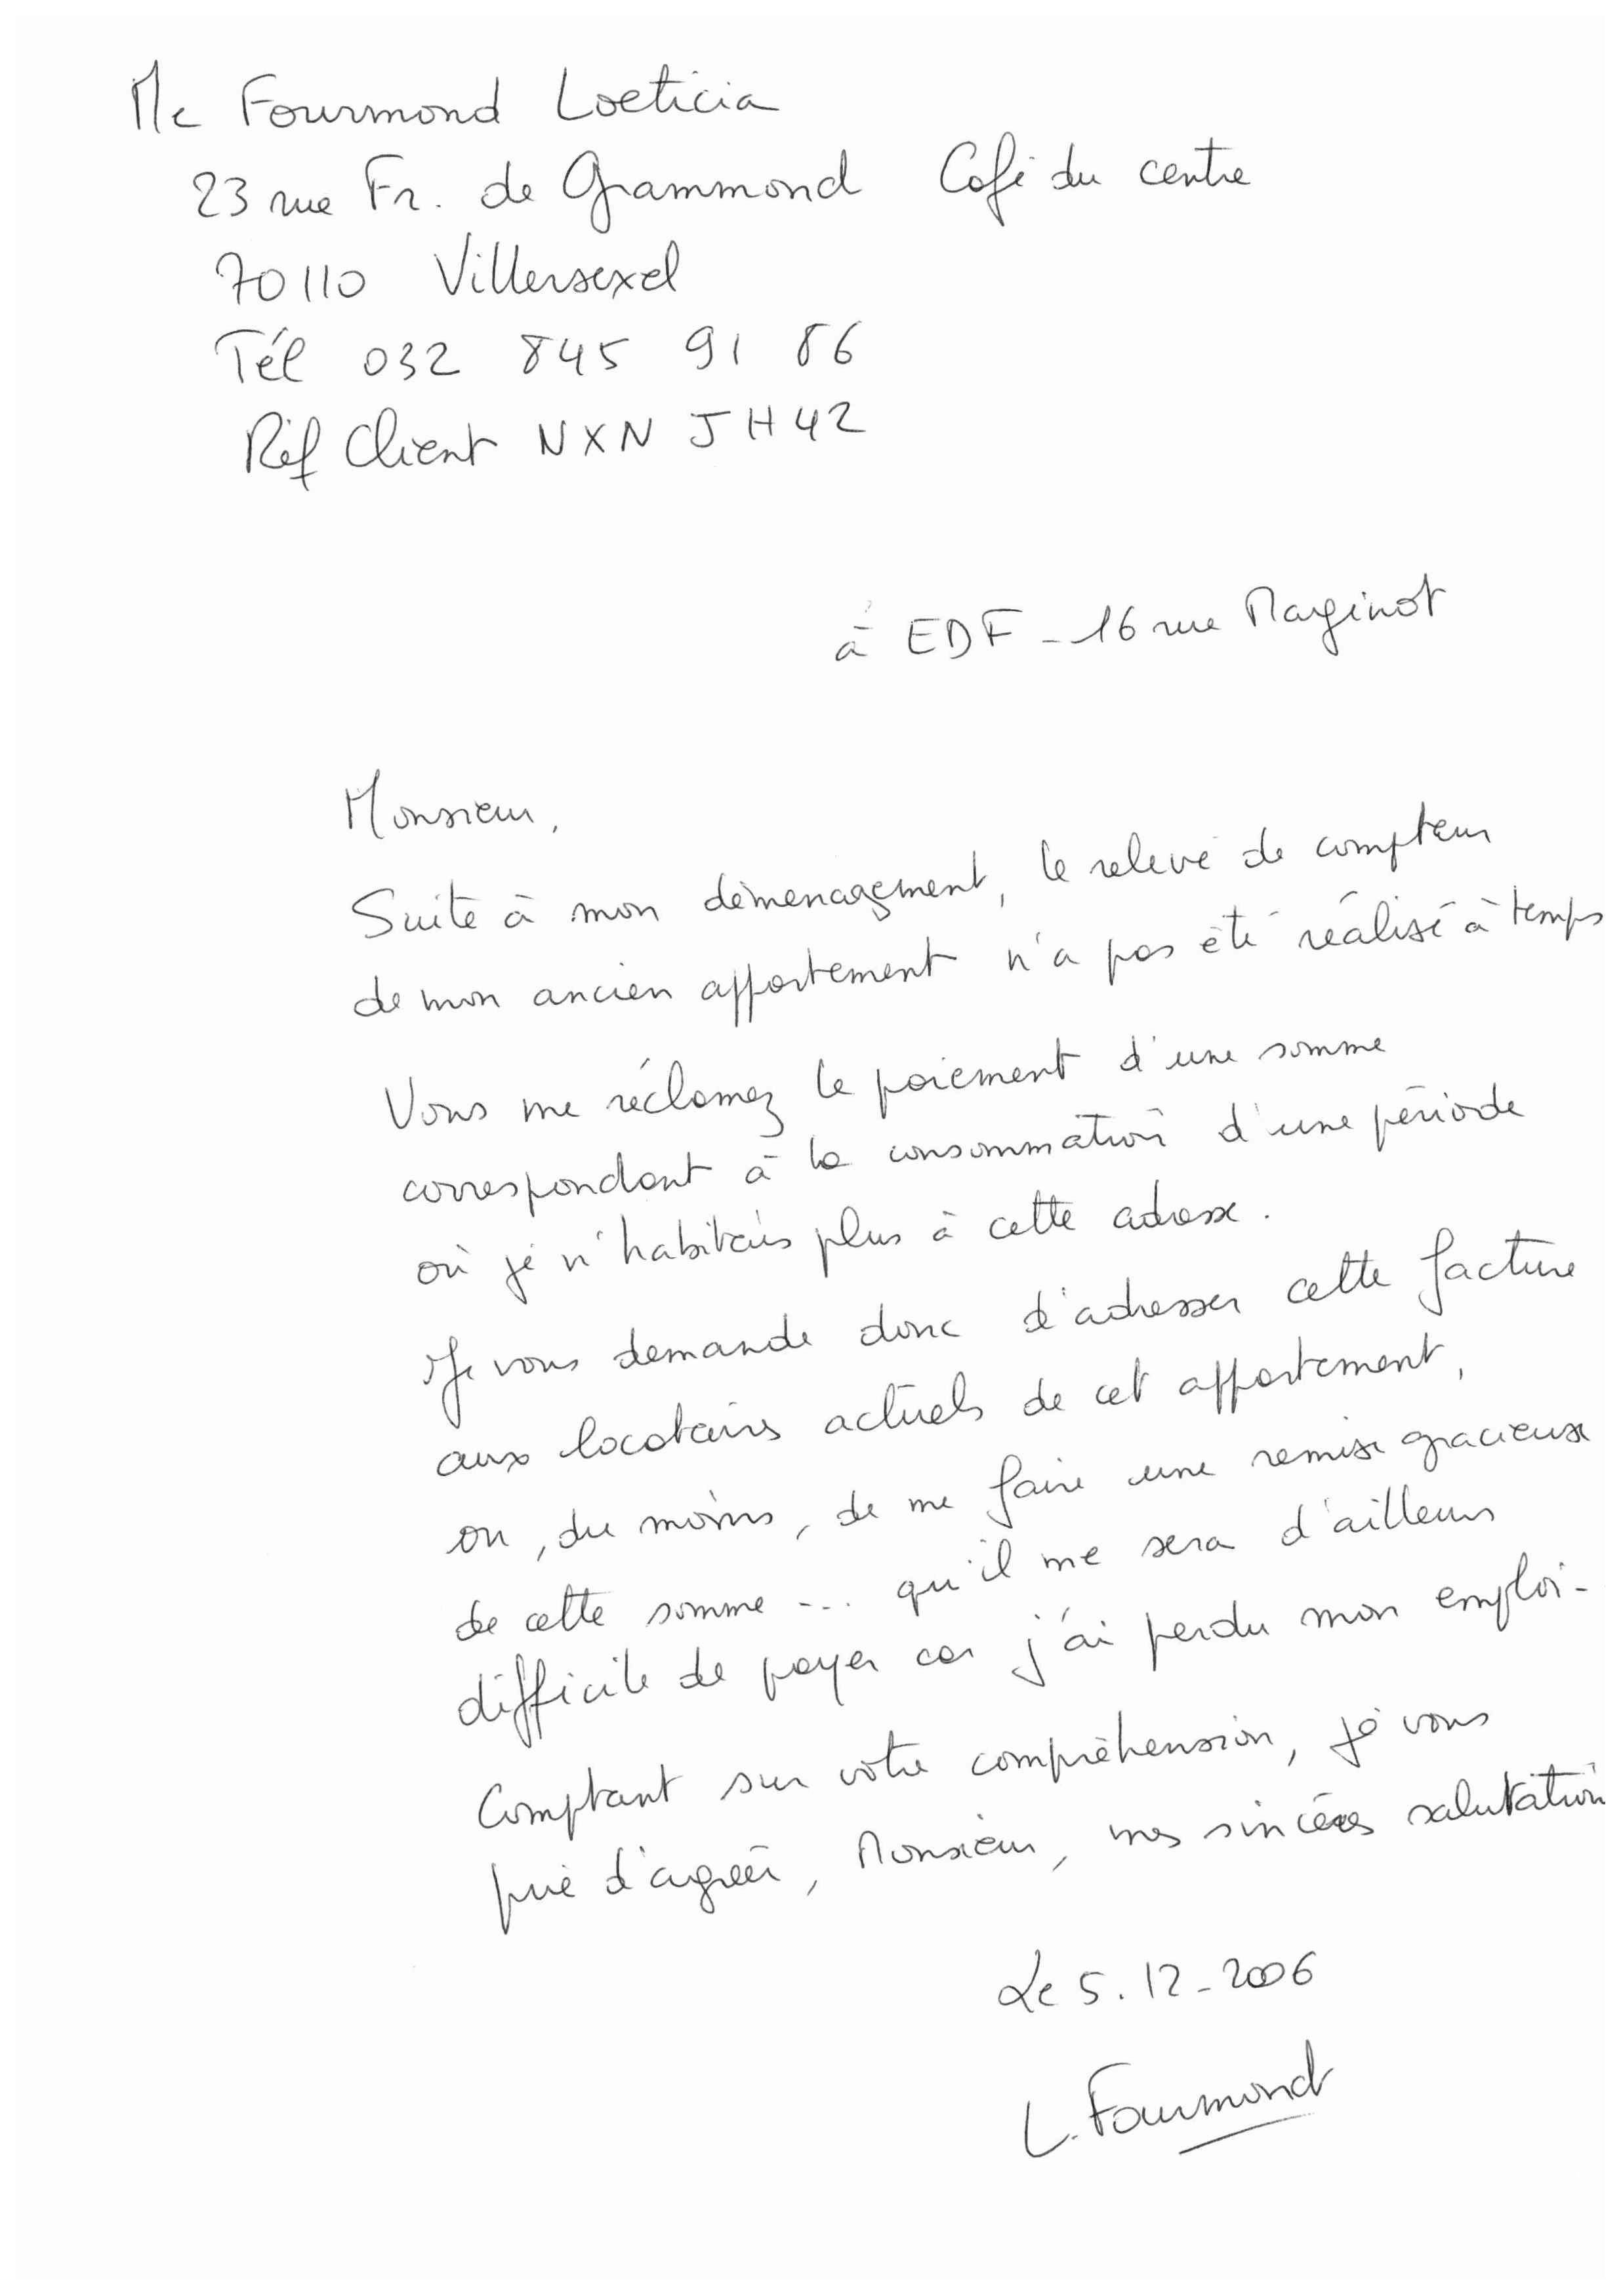 Me Fourmond Loeticia
23 rue Fr. de Grammond Café du centre
70110 Villersexel
Tél 032 845 91 86
Réf Client NXN JH42
à EDF - 16 rue Marginot
Monsieur,
Suite à mon déménagement, le relevé de compteur
de mon ancien appartement n'a pas été réalisé à temps
Vous me réclamez le paiement d'une somme
correspondant à la consommation d'une période
où je n'habitais plus à cette adresse.
Je vous demande donc d'adresser cette facture
aux locataires actuels de cet appartement,
ou, du moins, de me faire une remise gracieuse
de cette somme --- qu'il me sera d'ailleurs
difficile de payer car j'ai perdu mon emploi -
Comptant sur votre compréhension, je vous
prie d'agréer, Monsieur, mes sincères salutation
Le 5.12-2006
L. Fourmond